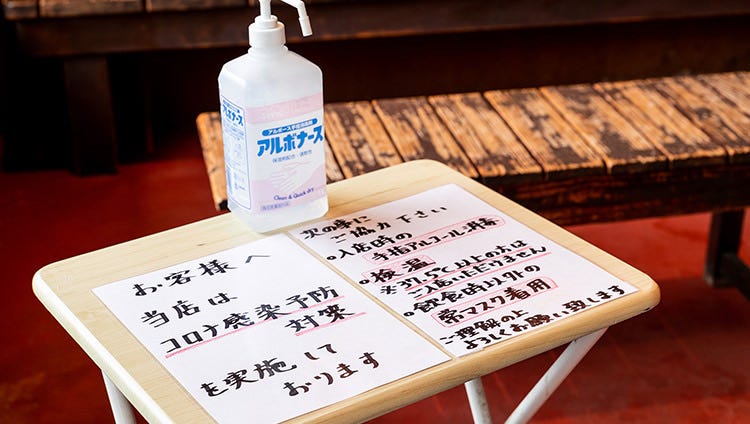 アルボース手指消毒剤
アルボナース
保湿剤配合・速乾性
Clean & Quick dry
お客様へ
当店は
コロナ感染予防
対策
を実施して
おります
次の事に
ご協力下さい
入店時の
手指アルコール消毒
検温
※37.5℃以上の方は
ご入店いただけません
飲食時以外の
常マスク着用
ご理解の上
よろしくお願い致します